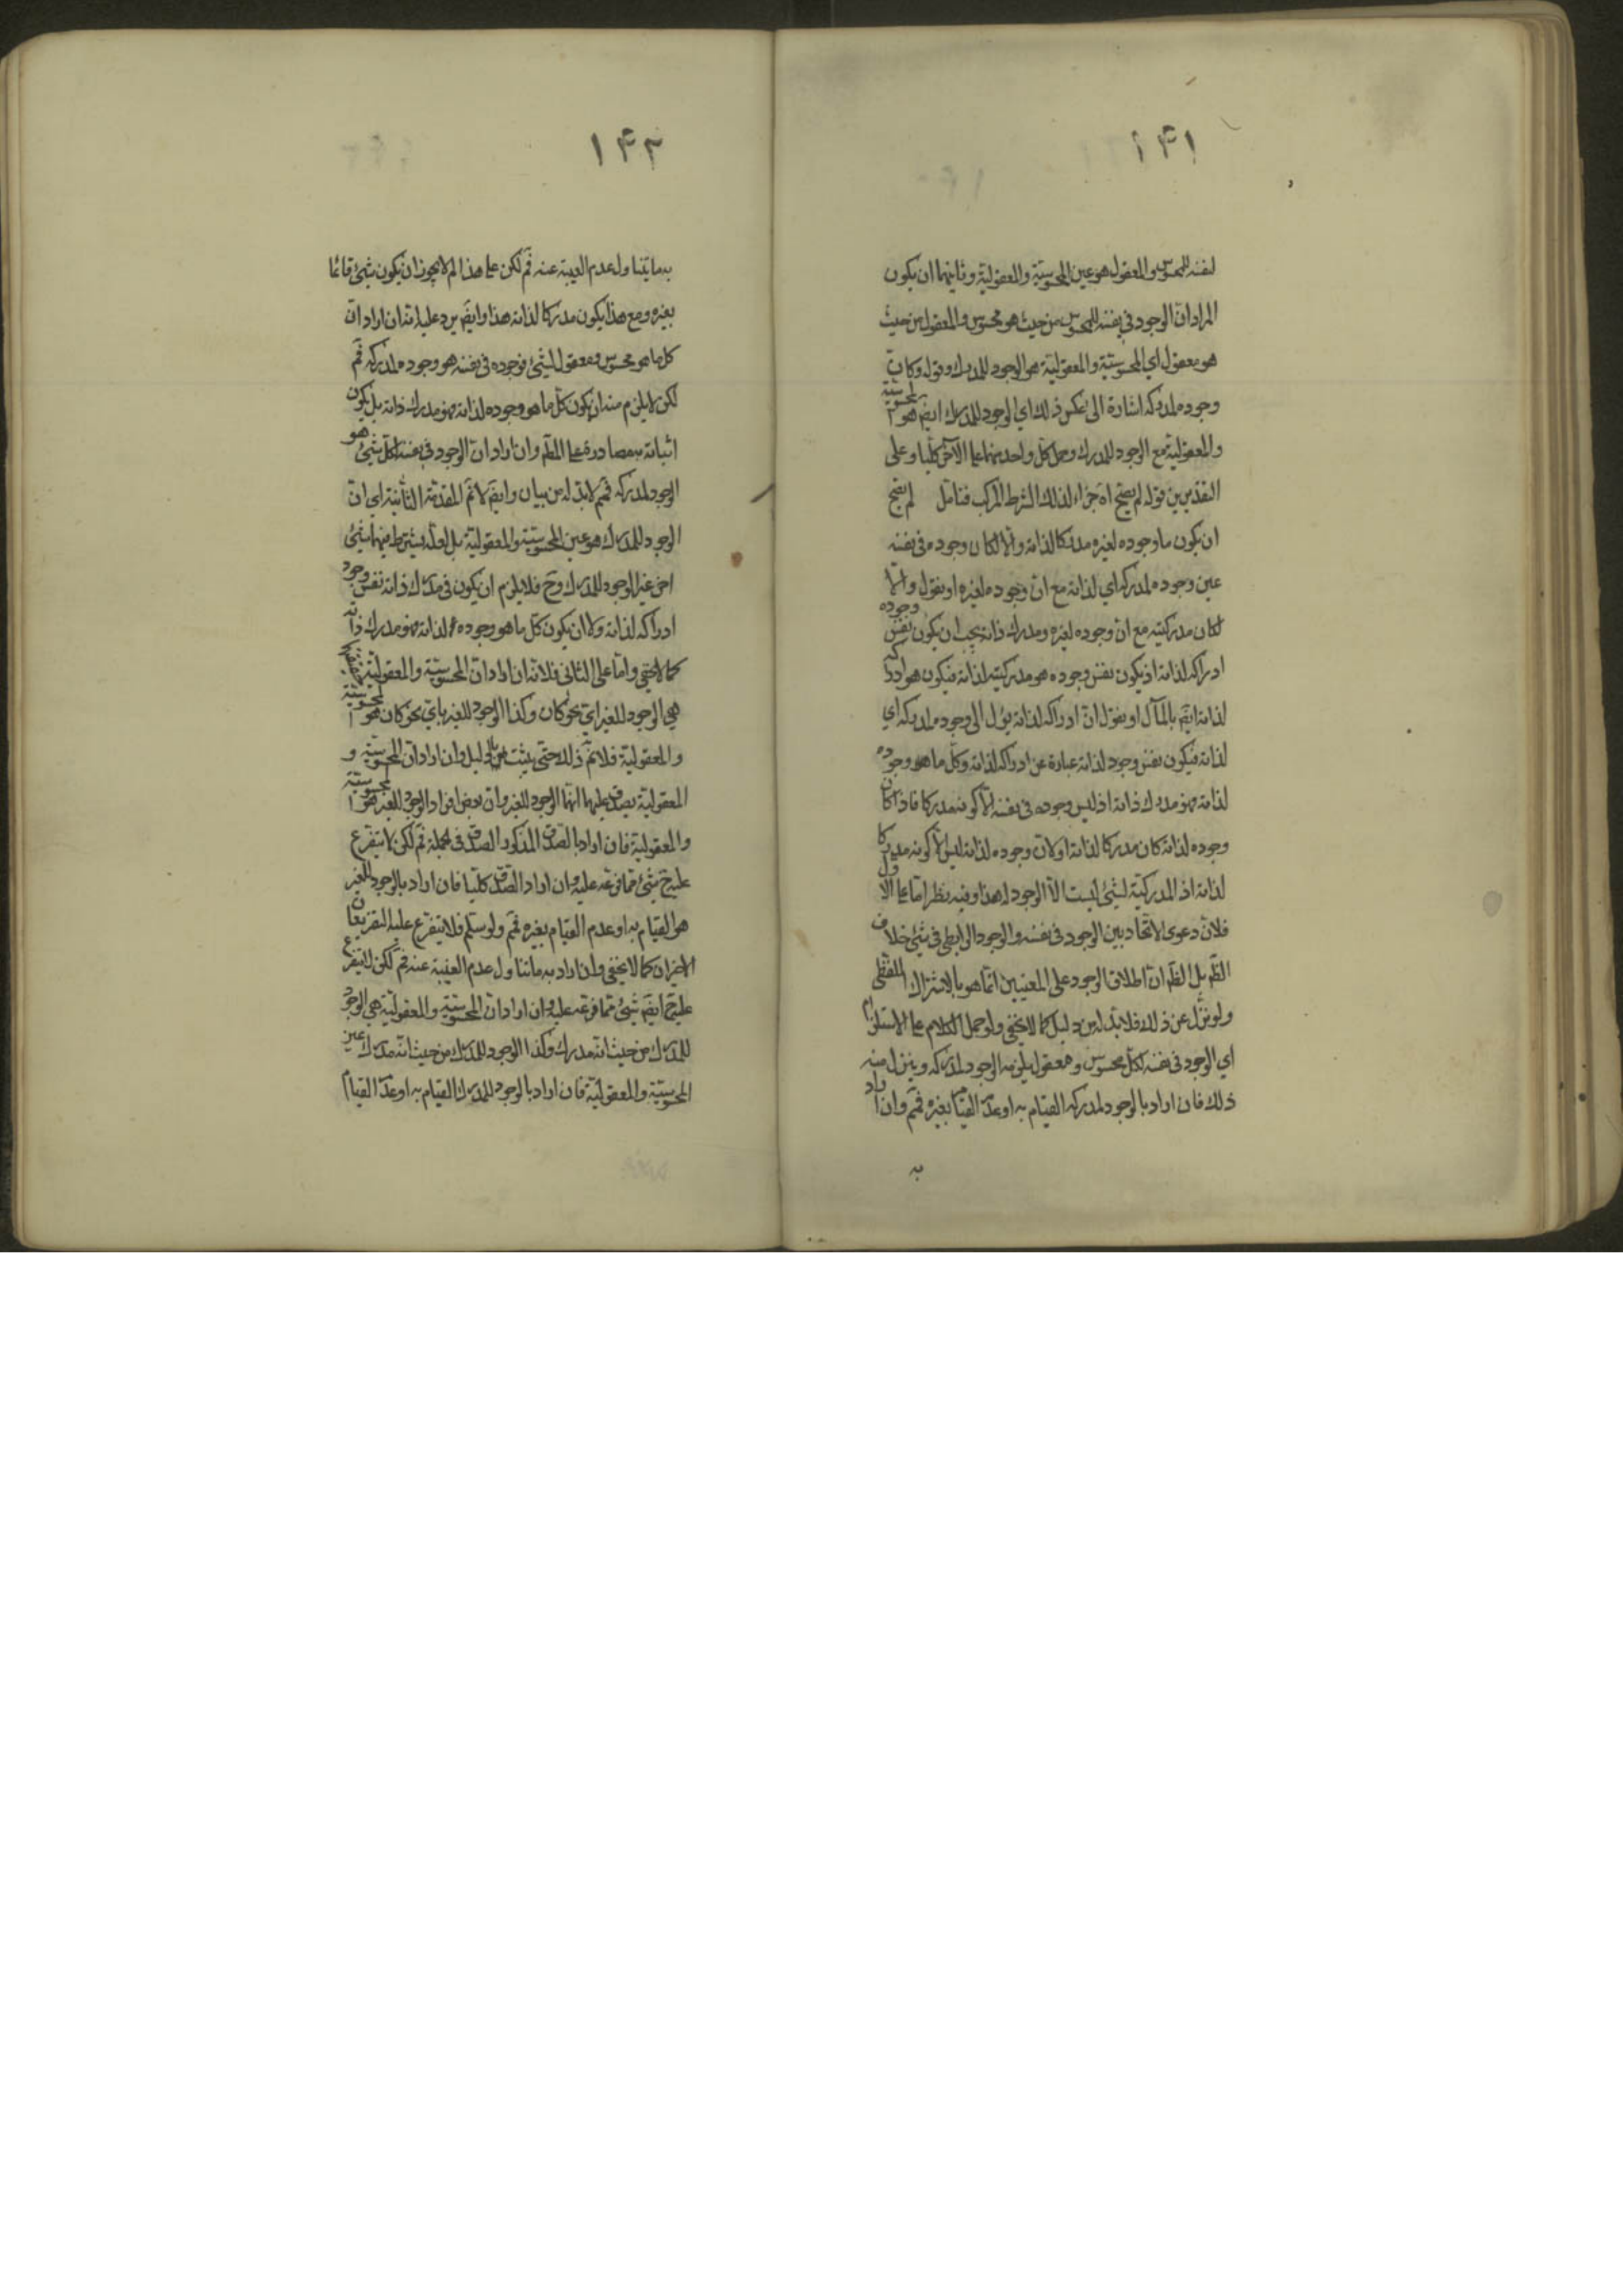 ١۴١
لنفسه للمحسوس والمعقول هو عين المحسوسية والمعقولية وثانيهما ان يكون
المراد ان الوجود في نفسه للمحسوس من حيث هو محسوس والمعقول من حيث
هو معقول اي المحسوسية والمعقولية هو الوجود للمدرك وقوله وكان
وجوده لمدركه اشارة الى عكس ذلك اي الوجود للمدرك ايضا هو المحسوسية
والمعقولية مع الوجود للمدرك وحمل كل واحد منهما على الآخر كليا وعلى
التقديرين قوله لم يصح اه جزاء لذلك الشرط المركب فتامل لم يصح
ان يكون ما وجوده لغيره مدركا لذاته والا لكان وجوده في نفسه
عين وجوده لمدركه اي لذاته مع ان وجوده لغيره او نقول والا
لكان مدركيته مع ان وجوده لغيره ومدرك ذاته يجب ان يكون نفس وجوده
ادراكه لذاته اذ يكون نفس وجوده هو مدركيته لذاته فيكون هو ادراكه
لذاته ايضا بالمآل او نقول ان ادراكه لذاته يؤل الى وجوده لمدركه اي
لذاته فيكون نفس وجود لذاته عبارة عن ادراكه لذاته وكل ما هو وجوده
لذاته فهو مدرك ذاته اذ ليس وجوده في نفسه الا كونه مدركا فاذا كان
وجوده لذاته كان مدركا لذاته او لان وجوده لذاته ليس الا كونه مدركا
لذاته اذ المدركية لشيئ ليست الا الوجود له هذا وفيه نظر اما على الاول
فلان دعوى الاتحاد بين الوجود في نفسه والوجود الرابطي في شيئ خلاف
الظم بل الظم ان اطلاق الوجود على المعنيين انما هو بالاشتراك اللفظي
ولو نزل عن ذلك فلا بد له من دليل كما لا يخفى ولو حمل الكلام على الاستلزام
اي الوجود في نفسه لكل محسوس ومعقول يلزمه الوجود لمدركه وينزل منه
ذلك فان اراد بالوجود لمدركه القيام به او عدم القيام بغيره فمم وان اراد
به
١۴٢
به ما يتناول عدم الغيبة عنه فم لكن على هذا لم لا يجوز ان يكون شيئ قائما
بغيره ومع هذا يكون مدركا لذاته هذا وايضا يرد عليه انه ان اراد ان
كل ما هو محسوس ومعقول لشيئ فوجوده في نفسه هو وجوده لمدركه فمم
لكن لا يلزم منه ان يكون كل ما هو وجوده لذاته فهو مدرك ذاته بل يكون
اثباته به مصادرة على المطم وان اراد ان الوجود في نفسه لكل شيئ هو
الوجود لمدركه فمم لا بد له من بيان وايضا لا نم المقدمة الثانية اي ان
الوجود للمدرك هو عين المحسوسية والمعقولية بل لعله يشترط فيهما شيئ
اخر غير الوجود للمدرك وح فلا يلزم ان يكون في مدرك ذاته نفس وجوده
ادراكه لذاته ولا ان يكون كل ما هو وجوده لذاته فهو مدرك ذاته
كما لا يخفى واما على الثاني فلانه ان اراد ان المحسوسية والمعقولية
هي الوجود للغير اي نحو كان وكذا الوجود للغير باي نحو كان هو المحسوسية
والمعقولية فلا نم ذلك حتى يثبت بالدليل وان اراد ان المحسوسية و
المعقولية يصدق عليهما انهما الوجود للغير وان بعض افراد الوجود للغير هو المحسوسية
والمعقولية فان اراد بالصدق المذكور الصدق في الجملة فم لكن لا يتفرع
عليه ح شيئ مما فرعه عليه وان اراد الصدق كليا فان اراد بالوجود للغير
هو القيام به او عدم القيام بغيره فمم ولو سلم فلا يتفرع عليه التفريعان
الاخيران كما لا يخفى وان اراد به ما يتناول عدم الغيبة عنه فم لكن لا يتفرع
عليه ح ايضا شيئ مما فرعه عليه وان اراد ان المحسوسية والمعقولية هي الوجود
للمدرك من حيث انه مدرك وكذا الوجود للمدرك من حيث انه مدرك عين
المحسوسية والمعقولية فان اراد بالوجود للمدرك القيام به او عدم القيام